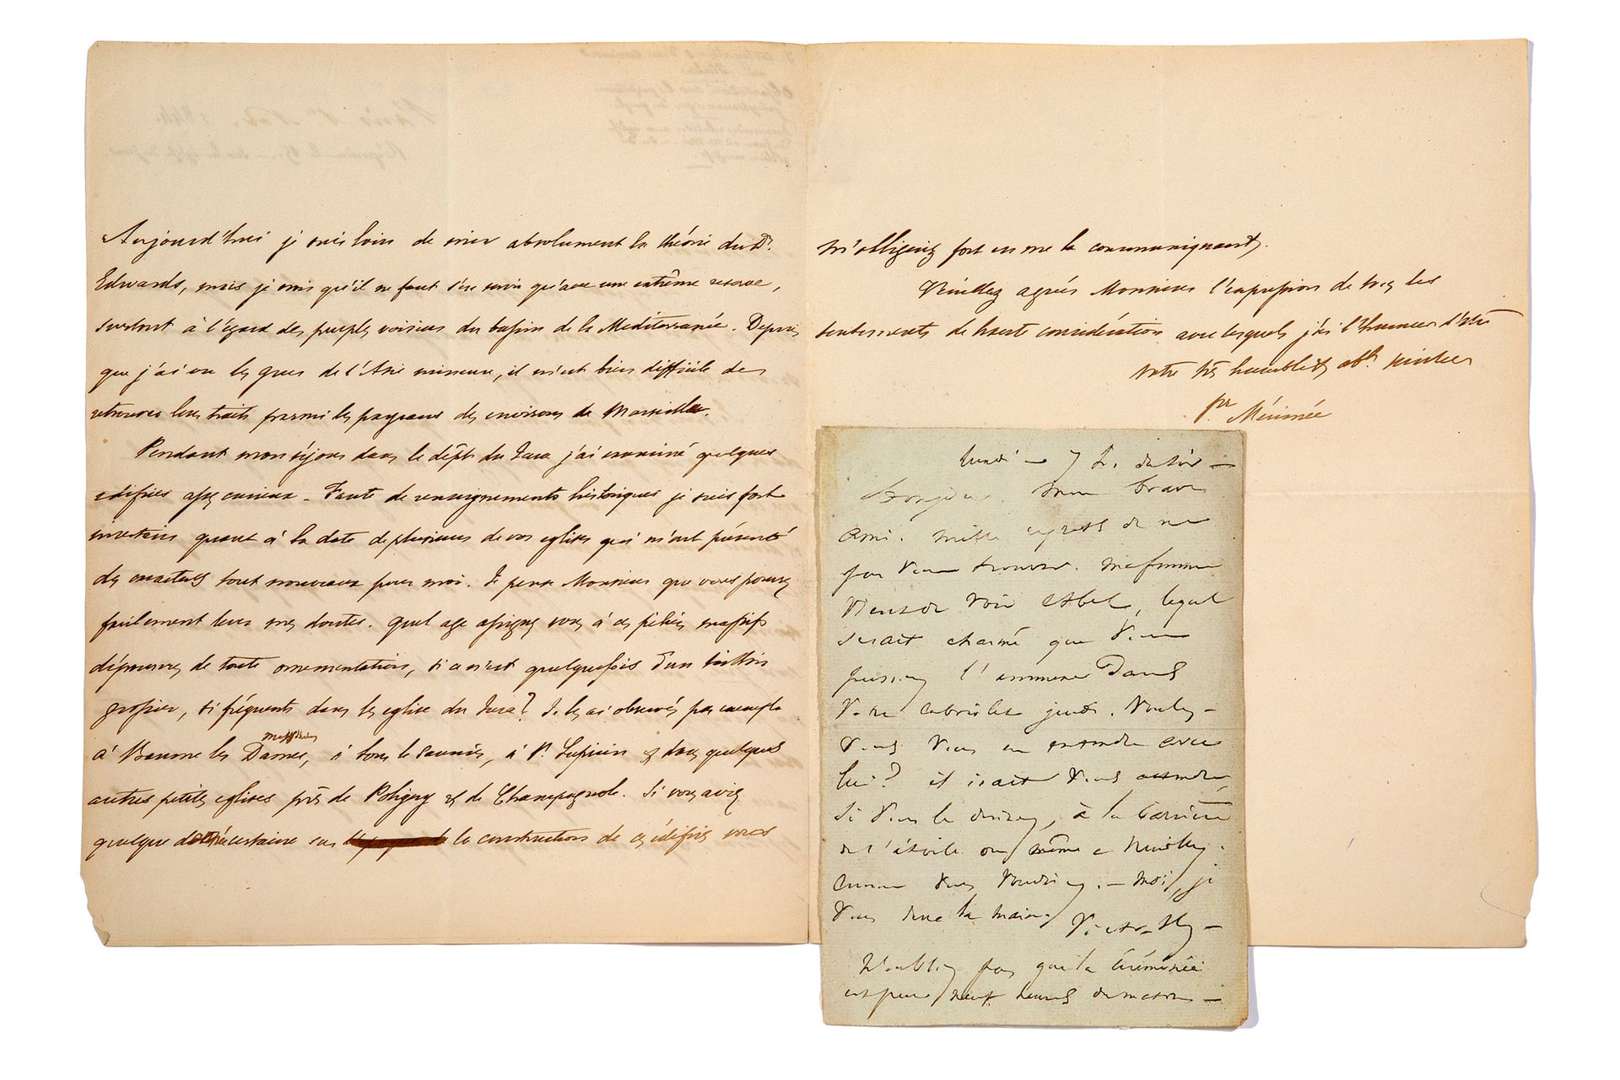 Aujourd'hui je suis loin de nier absolument la théorie du Dr.
Edwards, mais je crois qu'il ne faut s'en servir qu'avec une extrême réserve,
surtout à l'égard des peuples voisins du bassin de la Mediterranée. Depuis
que j'ai vu les grecs de l'Asie mineure, il m'est bien difficile de
retrouver leurs traits parmi les paysans des environs de Marseille.
Pendant mon séjour dans le dépt. du Jura j'ai examiné quelques
édifices assez curieux. Faute de renseignements historiques je suis fort
incertain quant à la date de plusieurs de vos eglises qui m'ont présenté
des caractères tout nouveaux pour moi. Je pense Monsieur que vous pouvez
facilement lever mes doutes. Quel age assignez vous à ces piliers massifs
dépourvus de toute ornementation, si ce n'est quelquefois d'un tailloir
grossier, si fréquents dans les eglises du Jura? Je les ai observés par exemple
à Baume les Dames, messieurs à Lons le Saunier, à St. Lupicin et dans quelques
autres petites eglises près de Poligny et de Champagnole. Si vous aviez
quelque donnée certaine sur la construction de ces édifices vous
m'obligeriez fort en me la communiquant.
Veuillez agréer Monsieur l'expression de tous les
sentiments de haute considération avec lesquels j'ai l'honneur d'être
votre très humble et obt. serviteur
Pr. Mérimée
lundi — 7 h. du soir —
Bonjour, mon brave
ami. Mille regrets de ne
pas vous trouver. Ma femme
vient de voir Abel, lequel
serait charmé que vous
puissiez l'emmener dans
votre cabriolet jeudi. Voulez-
vous vous en entendre avec
lui? il irait vous attendre,
si vous le désirez, à la barrière
de l'étoile ou même à Neuilly.
comme vous voudrez. — Moi, je
vous serre la main.
Victor Hy —
N'oubliez pas que la cérémonie
est pour neuf heures du matin —